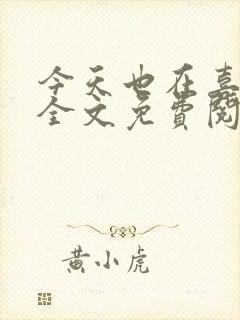 今天也在喜
全文免費閱
黄小虎